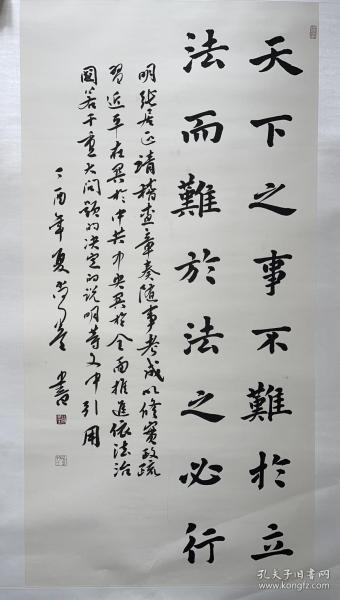 天下之事不難於立
法而難於法之必行
明張居正請稽查章奏隨事考成以修實政疏
習近平在關於中共中央關於全面推進依法治
國若干重大問題的决定的説明等文中引用
丁酉年夏 書
孔夫子旧书网
kongfz.com